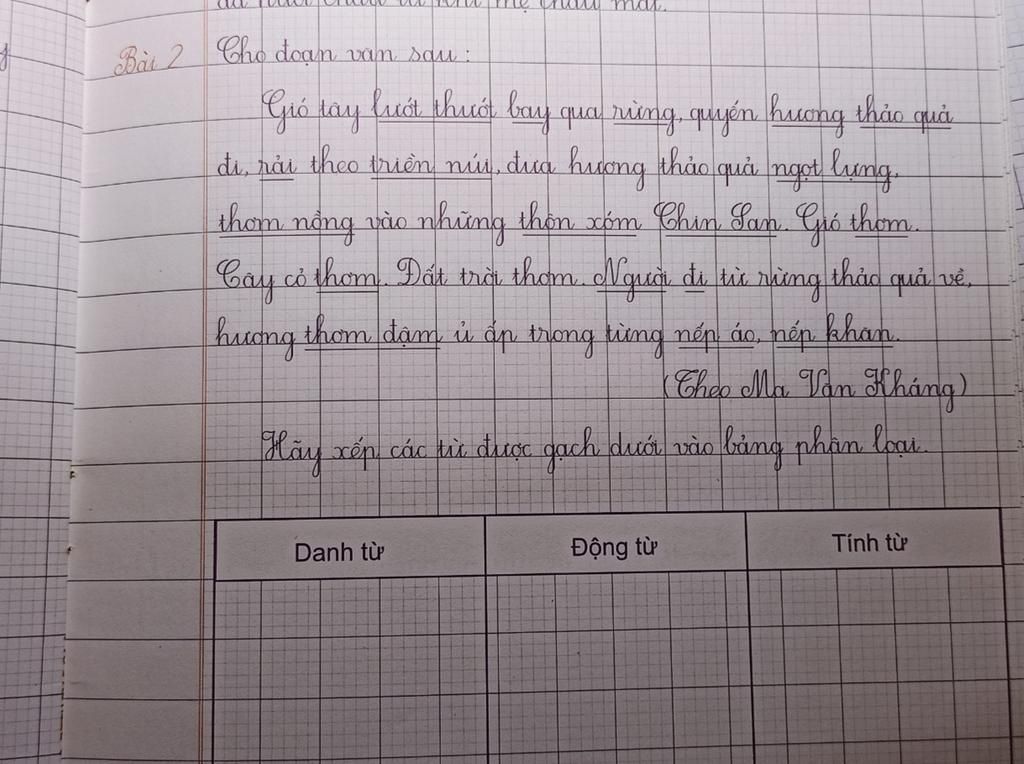 Bài 2
Cho đoạn văn sau:
Gió tây lướt thướt bay qua rừng, quyến hương thảo quả
đi, rải theo triền núi, đưa hương thảo quả ngọt lựng,
thơm nồng vào những thôn xóm Chin San. Gió thơm.
Cây cỏ thơm. Đất trời thơm. Người đi từ rừng thảo quả về,
hương thơm đậm ủ ấp trong từng nếp áo, nếp khăn.
(Theo Ma Văn Kháng)
Hãy xếp các từ được gạch dưới vào bảng phân loại.
Danh từ Động từ Tính từ